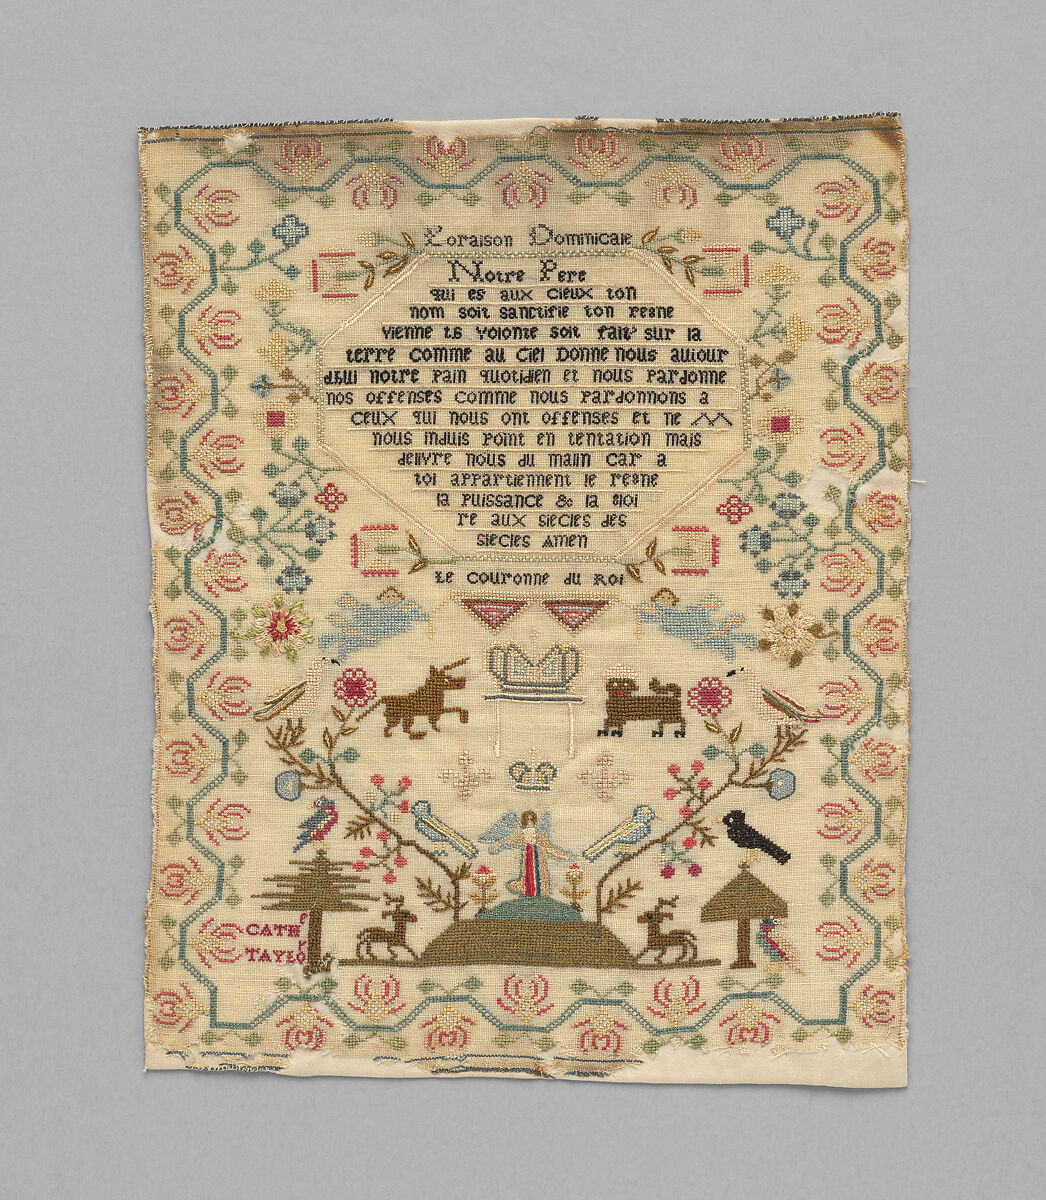 L'oraison Dominicale
Notre Pere
qui es aux cieux ton
nom soit sanctifie ton regne
vienne ta volonte soit fait sur la
terre comme au ciel Donne nous aujour
d'hui notre pain quotidien et nous pardonne
nos offenses comme nous pardonnons a
ceux qui nous ont offenses et ne
nous induis point en tentation mais
delivre nous du malin car a
toi appartiennent le regne
la puissance & la gloi
re aux siecles des
siecles amen
Le couronne du Roi
CATHe
TAYLOr